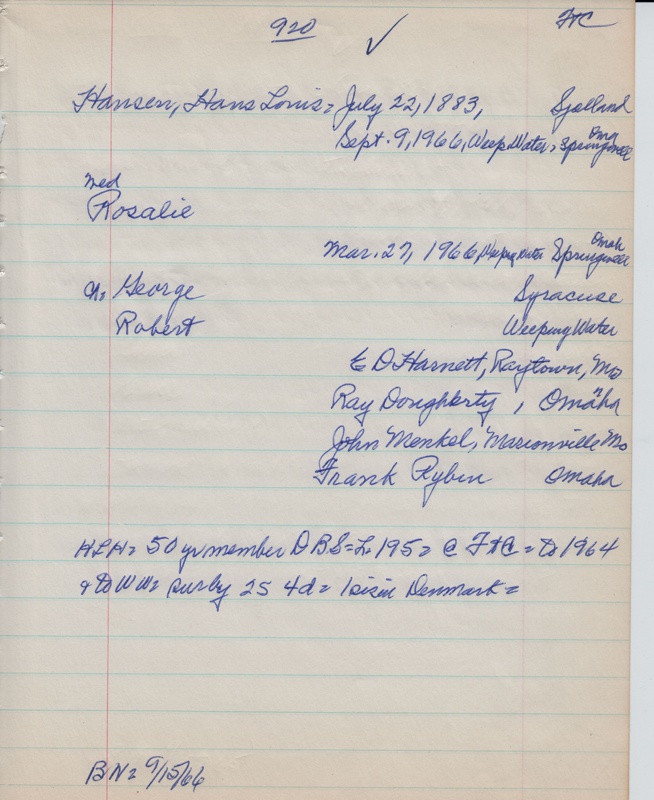 920
FtC
Hansen, Hans Louis = July 22, 1883, Sjolland
Sept. 9, 1966, Weep Water, Springwell Oma
med
Rosalie
Mar. 27, 1966, Weeping Water Springwell Omah
Ch= George Syracuse
Robert Weeping Water
E D Harnett, Raytown, Mo
Ray Dougherty, Omaha
John Menkel, Marionville Mo
Frank Rybin Omaha
HLH = 50 yr member DBS = L. 195 = @ FtC = to 1964
& to WW = sur by 2S 4d = 1 sis in Denmark =
BN = 9/15/66